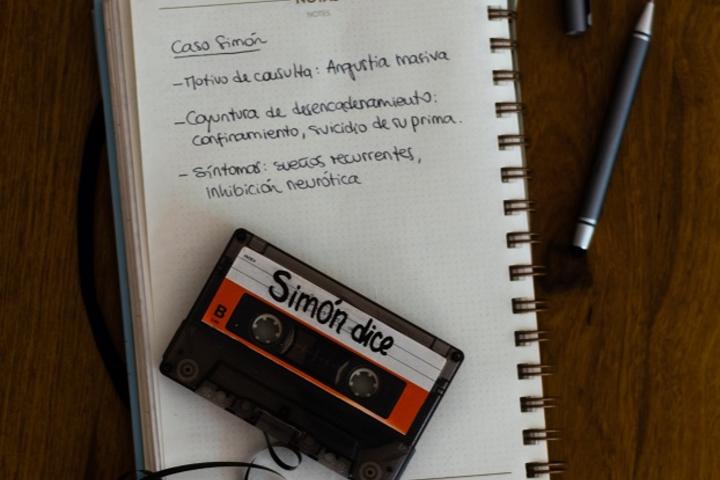 NOTES
Caso Simón
-Motivo de consulta: Angustia masiva
-Coyuntura de desencadenamiento:
confinamiento, suicidio de su prima.
- Síntomas: sueños recurrentes,
inhibición neurótica
Simón dice
B